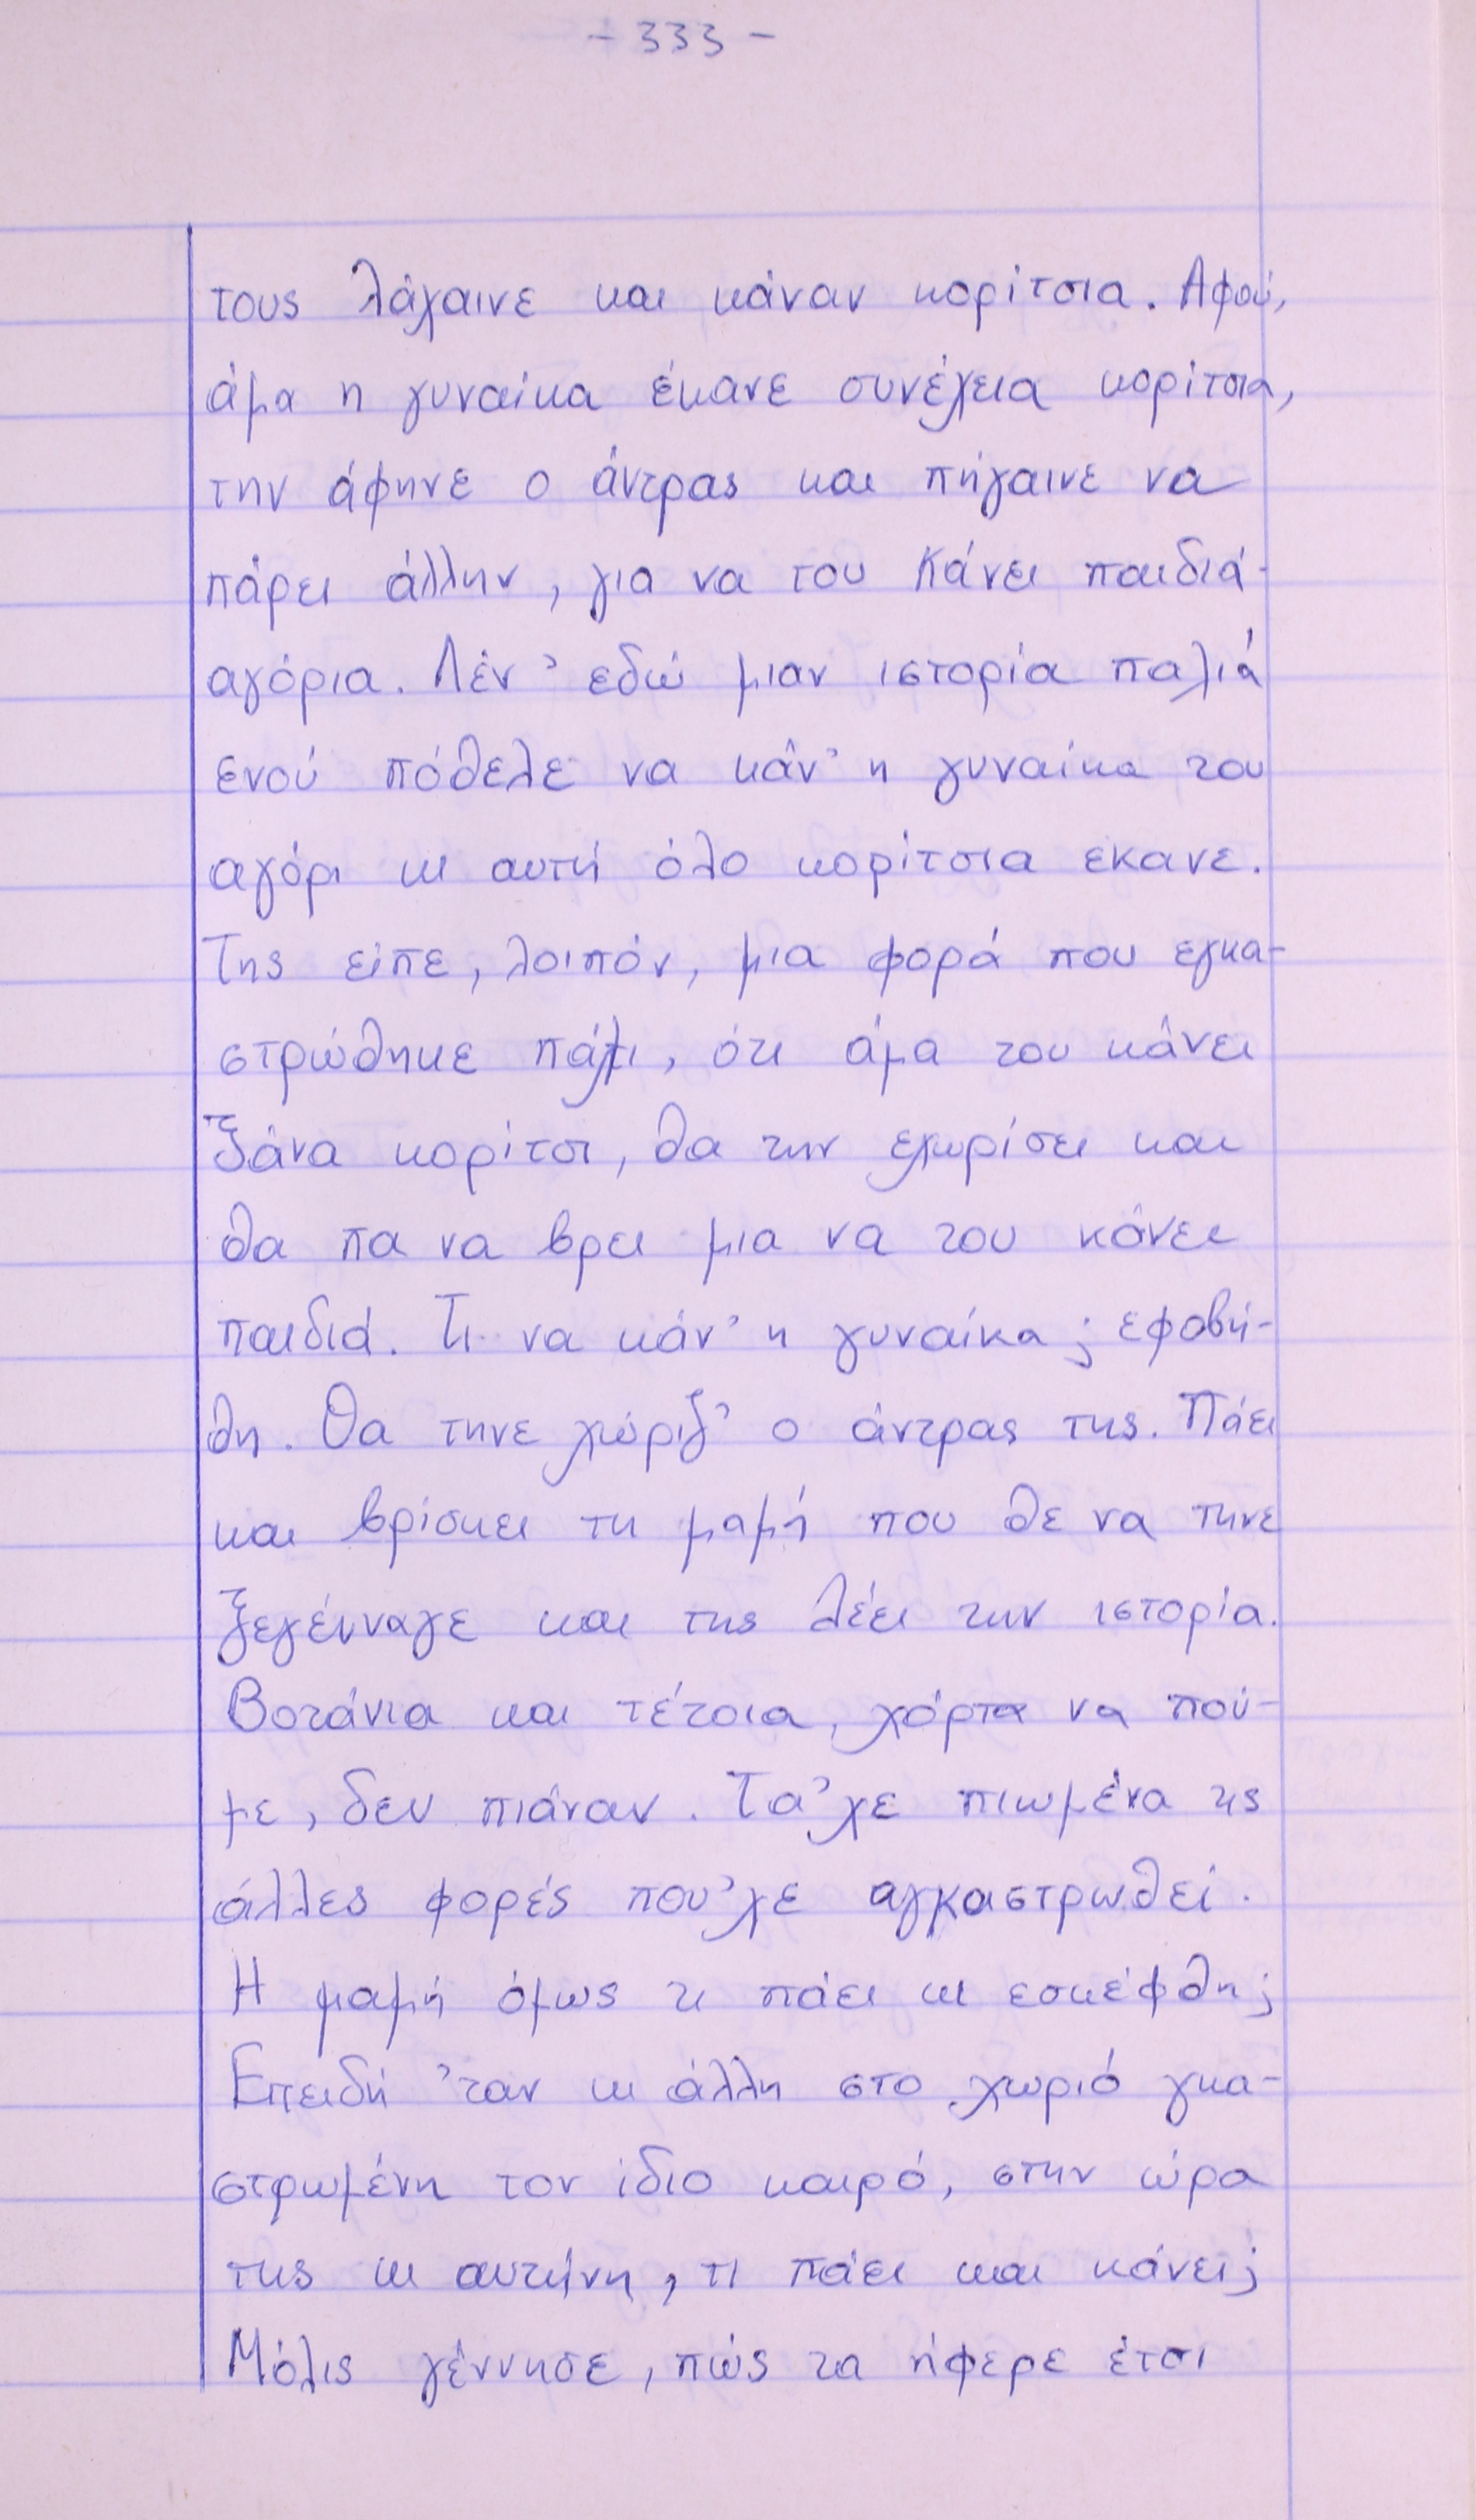 - 333 -
τους λάχαινε και κάναν κορίτσια. Αφού,
άμα η γυναίκα έκανε συνέχεια κορίτσια,
την άφηνε ο άντρας και πήγαινε να
πάρει άλλην, για να του κάνει παιδιά-
αγόρια. Λέν' εδώ μιαν ιστορία παλιά
ενού πόθελε να κάν' η γυναίκα του
αγόρι κι αυτή όλο κορίτσια εκανε.
Της είπε, λοιπόν, μια φορά που εγκα-
στρώθηκε πάλι, ότι άμα του κάνει
ξάνα κορίτσι, θα την εχωρίσει και
θα πα να βρει μια να του κάνει
παιδιά. Τι να κάν' η γυναίκα; εφοβή-
θη. Θα τηνε χώριζ' ο άντρας της. Πάει
και βρίσκει τη μαμή που θε να τηνε
ξεγένναγε και της λέει την ιστορία.
Βοτάνια και τέτοια, χόρτα να πού-
με, δεν πιάναν. Τα'χε πιωμένα τις
άλλες φορές που'χε αγκαστρωθεί.
Η μαμή όμως τι πάει κι εσκέφθη;
Επειδή 'ταν κι άλλη στο χωριό γκα-
στρωμένη τον ίδιο καιρό, στην ώρα
της κι αυτήνη, τι πάει και κάνει;
Μόλις γέννησε, πώς τα ήφερε έτσι